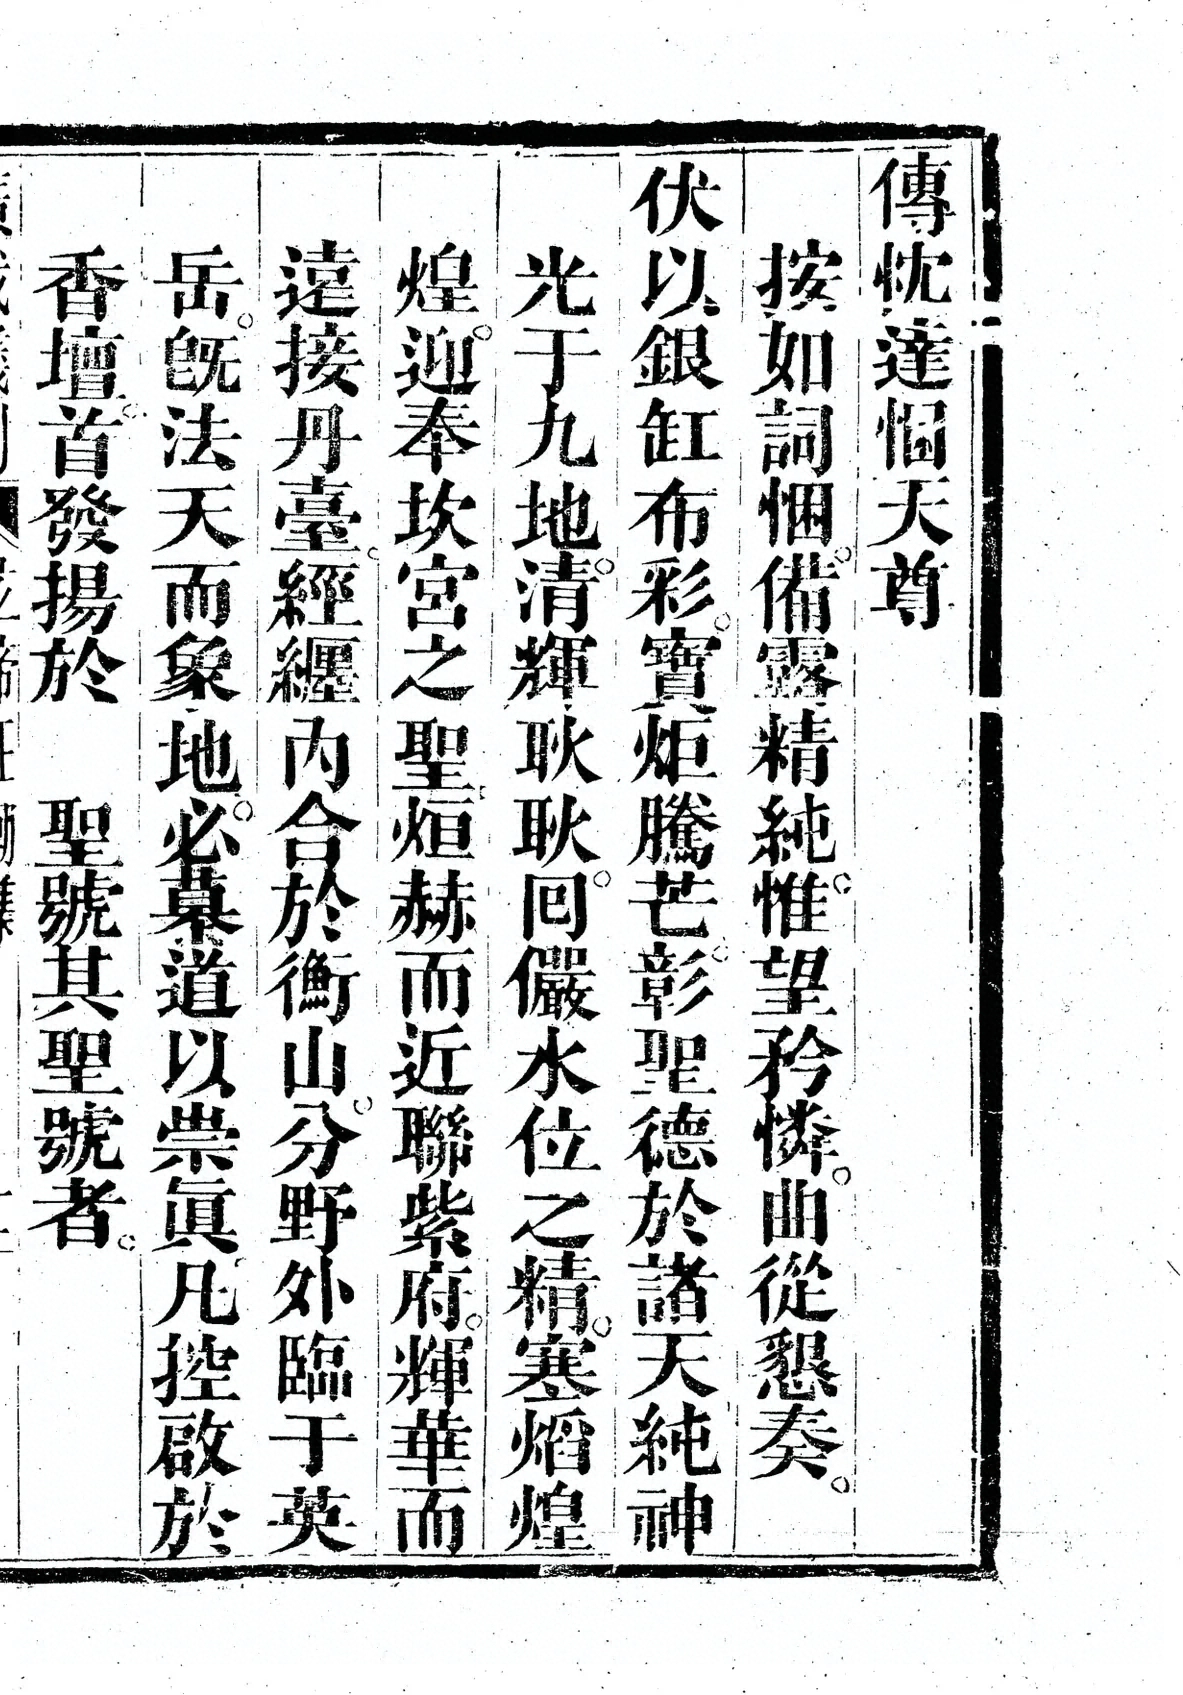 傳忱達悃天尊
按如詞悃。備露精純。惟望矜憐。曲從懇奏。
伏以銀缸布彩。寶炬騰芒。彰聖德於諸天純神
光于九地。清輝耿耿。回儼水位之精。寒熖煌
煌。迎奉坎宮之聖烜赫而近聯紫府。輝華而
遠接丹臺。經纒內合於衡山。分野外臨于英
岳。旣法天而象地。必慕道以崇眞凡控啟於
香壇。首發揚於 聖號其聖號者。